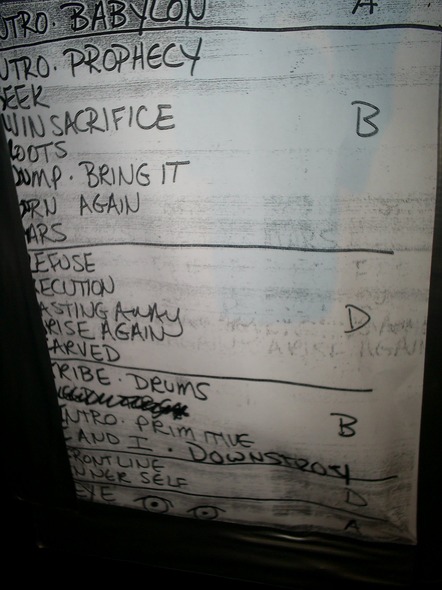 NTRO. BABYLON A
NTRO. PROPHECY
SEEK
WIN SACRIFICE B
ROOTS
UMP. BRING IT
ORN AGAIN
ARS
EFUSE
ECUTION
ASTING AWAY D
RISE AGAIN
ARVED
TRIBE. DRUMS
INTRO. PRIMITIVE B
AND I. DOWNSTROY
FRONTLINE
INNER SELF D
EYE A